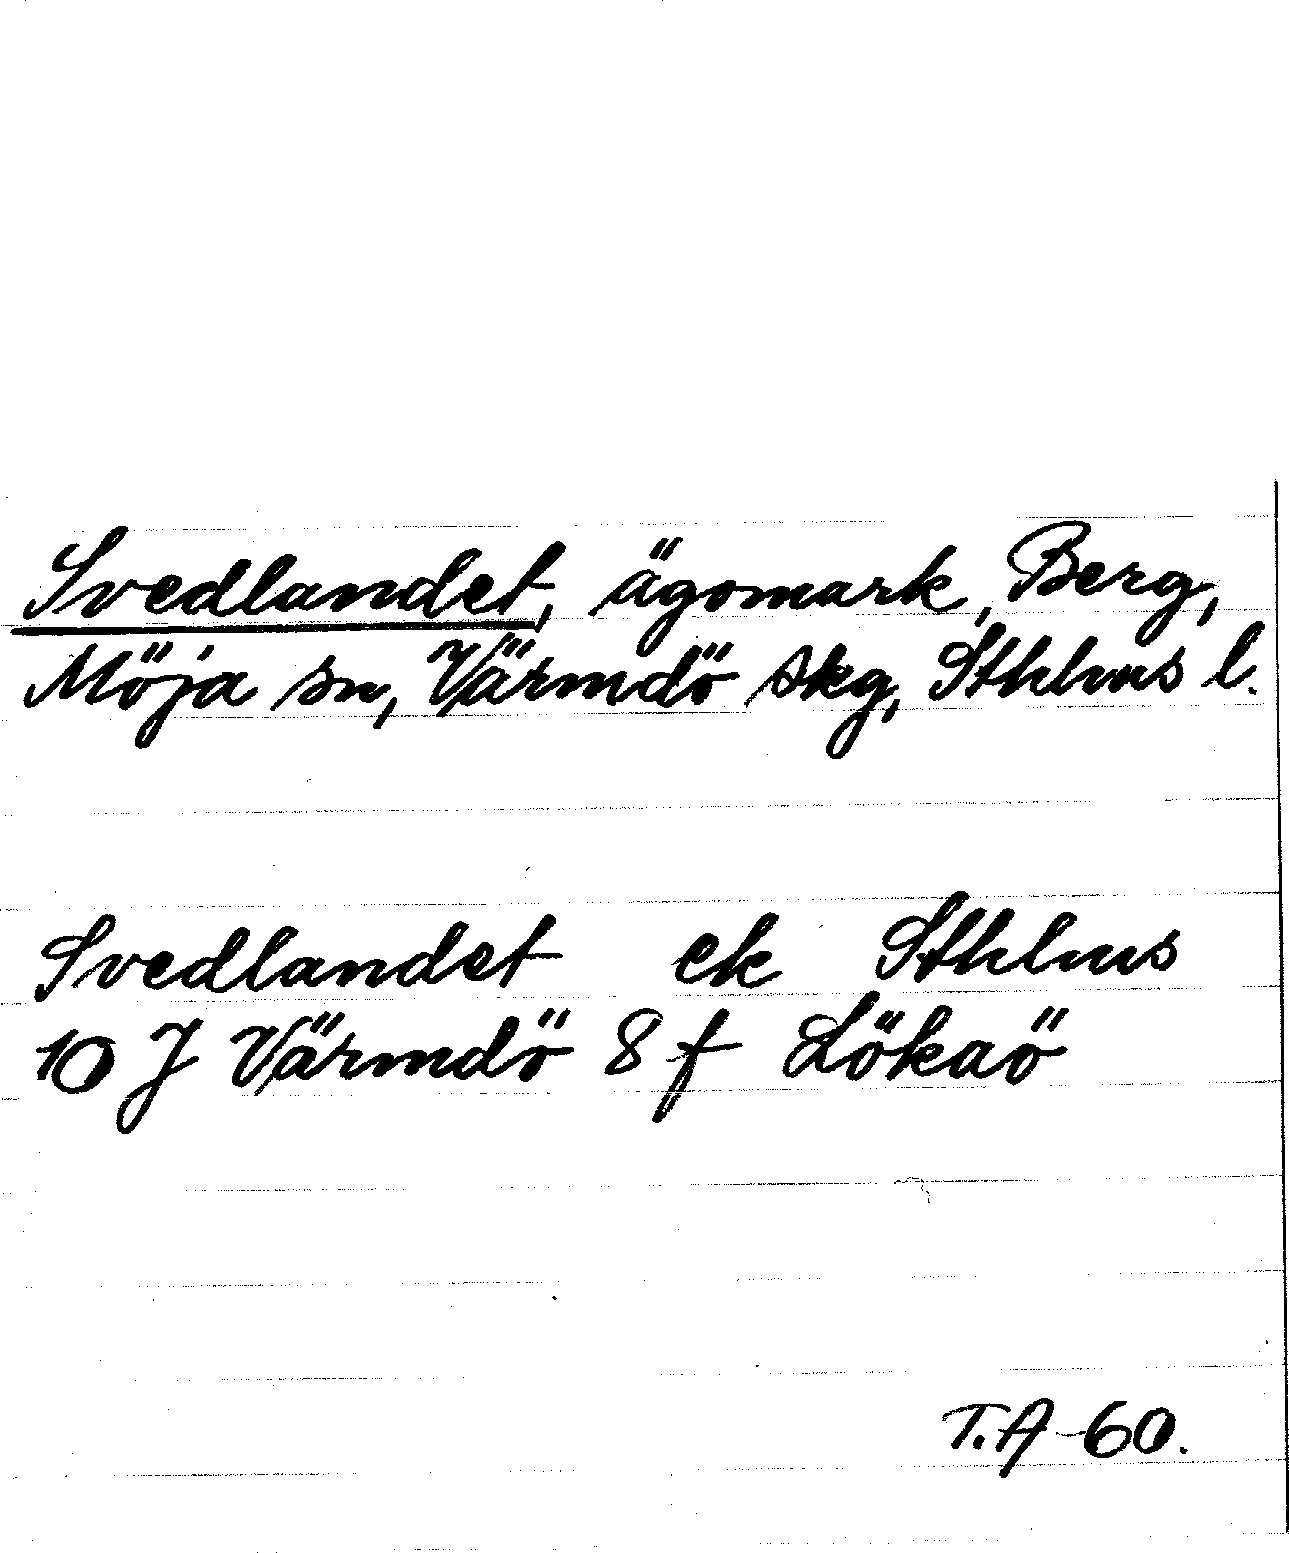 Svedlandet, ägomark, Berg,
Möja sn, Värmdö skg, Sthlms l.
Svedlandet ek Sthlms
10 J Värmdö 8 f Lökaö
T.A-60.